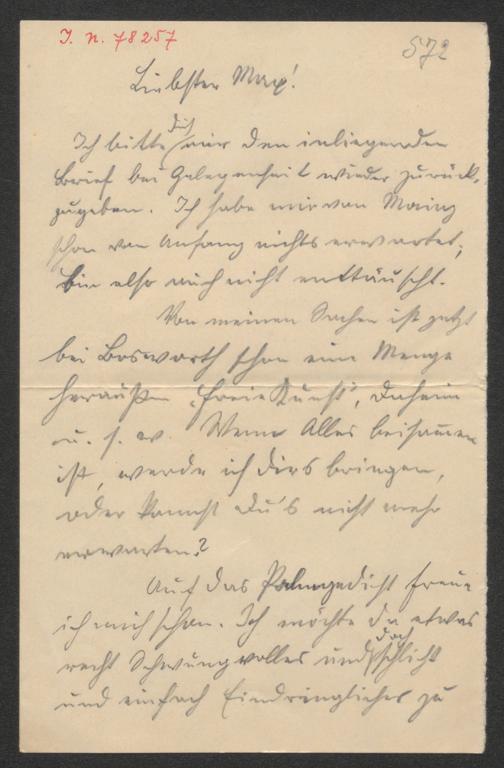 I. N. 78257
572
Liebster Max!
Ich bitte dich mir den inliegenden
Brief bei Gelegenheit wieder zurück-
zugeben. Ich habe mir von Mainz
schon von Anfang nichts erwartet,
bin also auch nicht enttäuscht.
Von meinen Sachen ist jetzt
bei Bosworth schon eine Menge
heraußen „Freie Kunst", Daheim
u. s. w. Wenn Alles beisammen
ist, werde ich dirs bringen,
oder kannst Du's nicht mehr
erwarten?
Auf das Palmgedicht freue
ich mich schon. Ich möchte da etwas
recht Schwungvolles und doch schlicht
und einfach Eindringliches zu